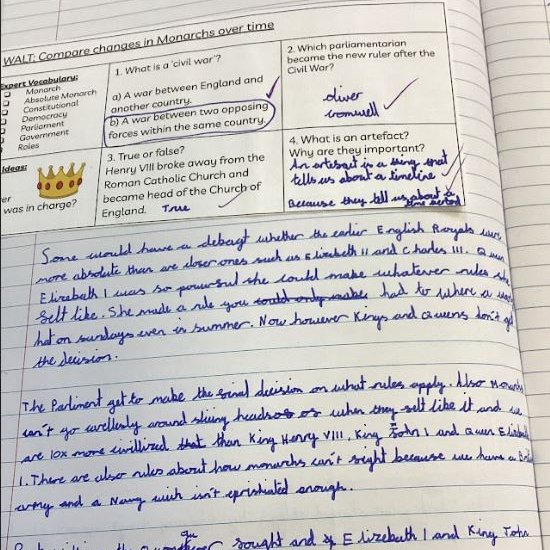 WALT: Compare changes in Monarchs over time
Expert Vocabulary:
Monarch
Absolute Monarch
Constitutional
Democracy
Parliament
Government
Roles
Ideas:
was in charge?
1. What is a 'civil war'?
a) A war between England and
another country.
b) A war between two opposing
forces within the same country.
2. Which parliamentarian
became the new ruler after the
Civil War?
oliver
cromwell
3. True or false?
Henry VIII broke away from the
Roman Catholic Church and
became head of the Church of
England. True
4. What is an artefact?
Why are they important?
An artefact is a thing that
tells us about a timeline
Because they tell us about a
time period
Some would have a debayt whether the earlier English Royals were
more absolute than are closer ones such as Elizabeth II and Charles III. Queen
Elizabeth I was so powerful she could make whatever rules she
felt like. She made a rule you could only make had to where a wool
hat on sundays even in summer. Now however Kings and Queens don't get
the decision.
The Parliment get to make the final decision on what rules apply. Also Monarchs
can't go carellesly around slicing heads of when they felt like it and we
are 10x more civillized that than King Henry VIII, King John I and Queen Elizabeth
1. There are also rules about how monarchs can't fight because we have a
army and a Navy wich isn't aprishiated enough.
fought and if Elizebeth I and King John